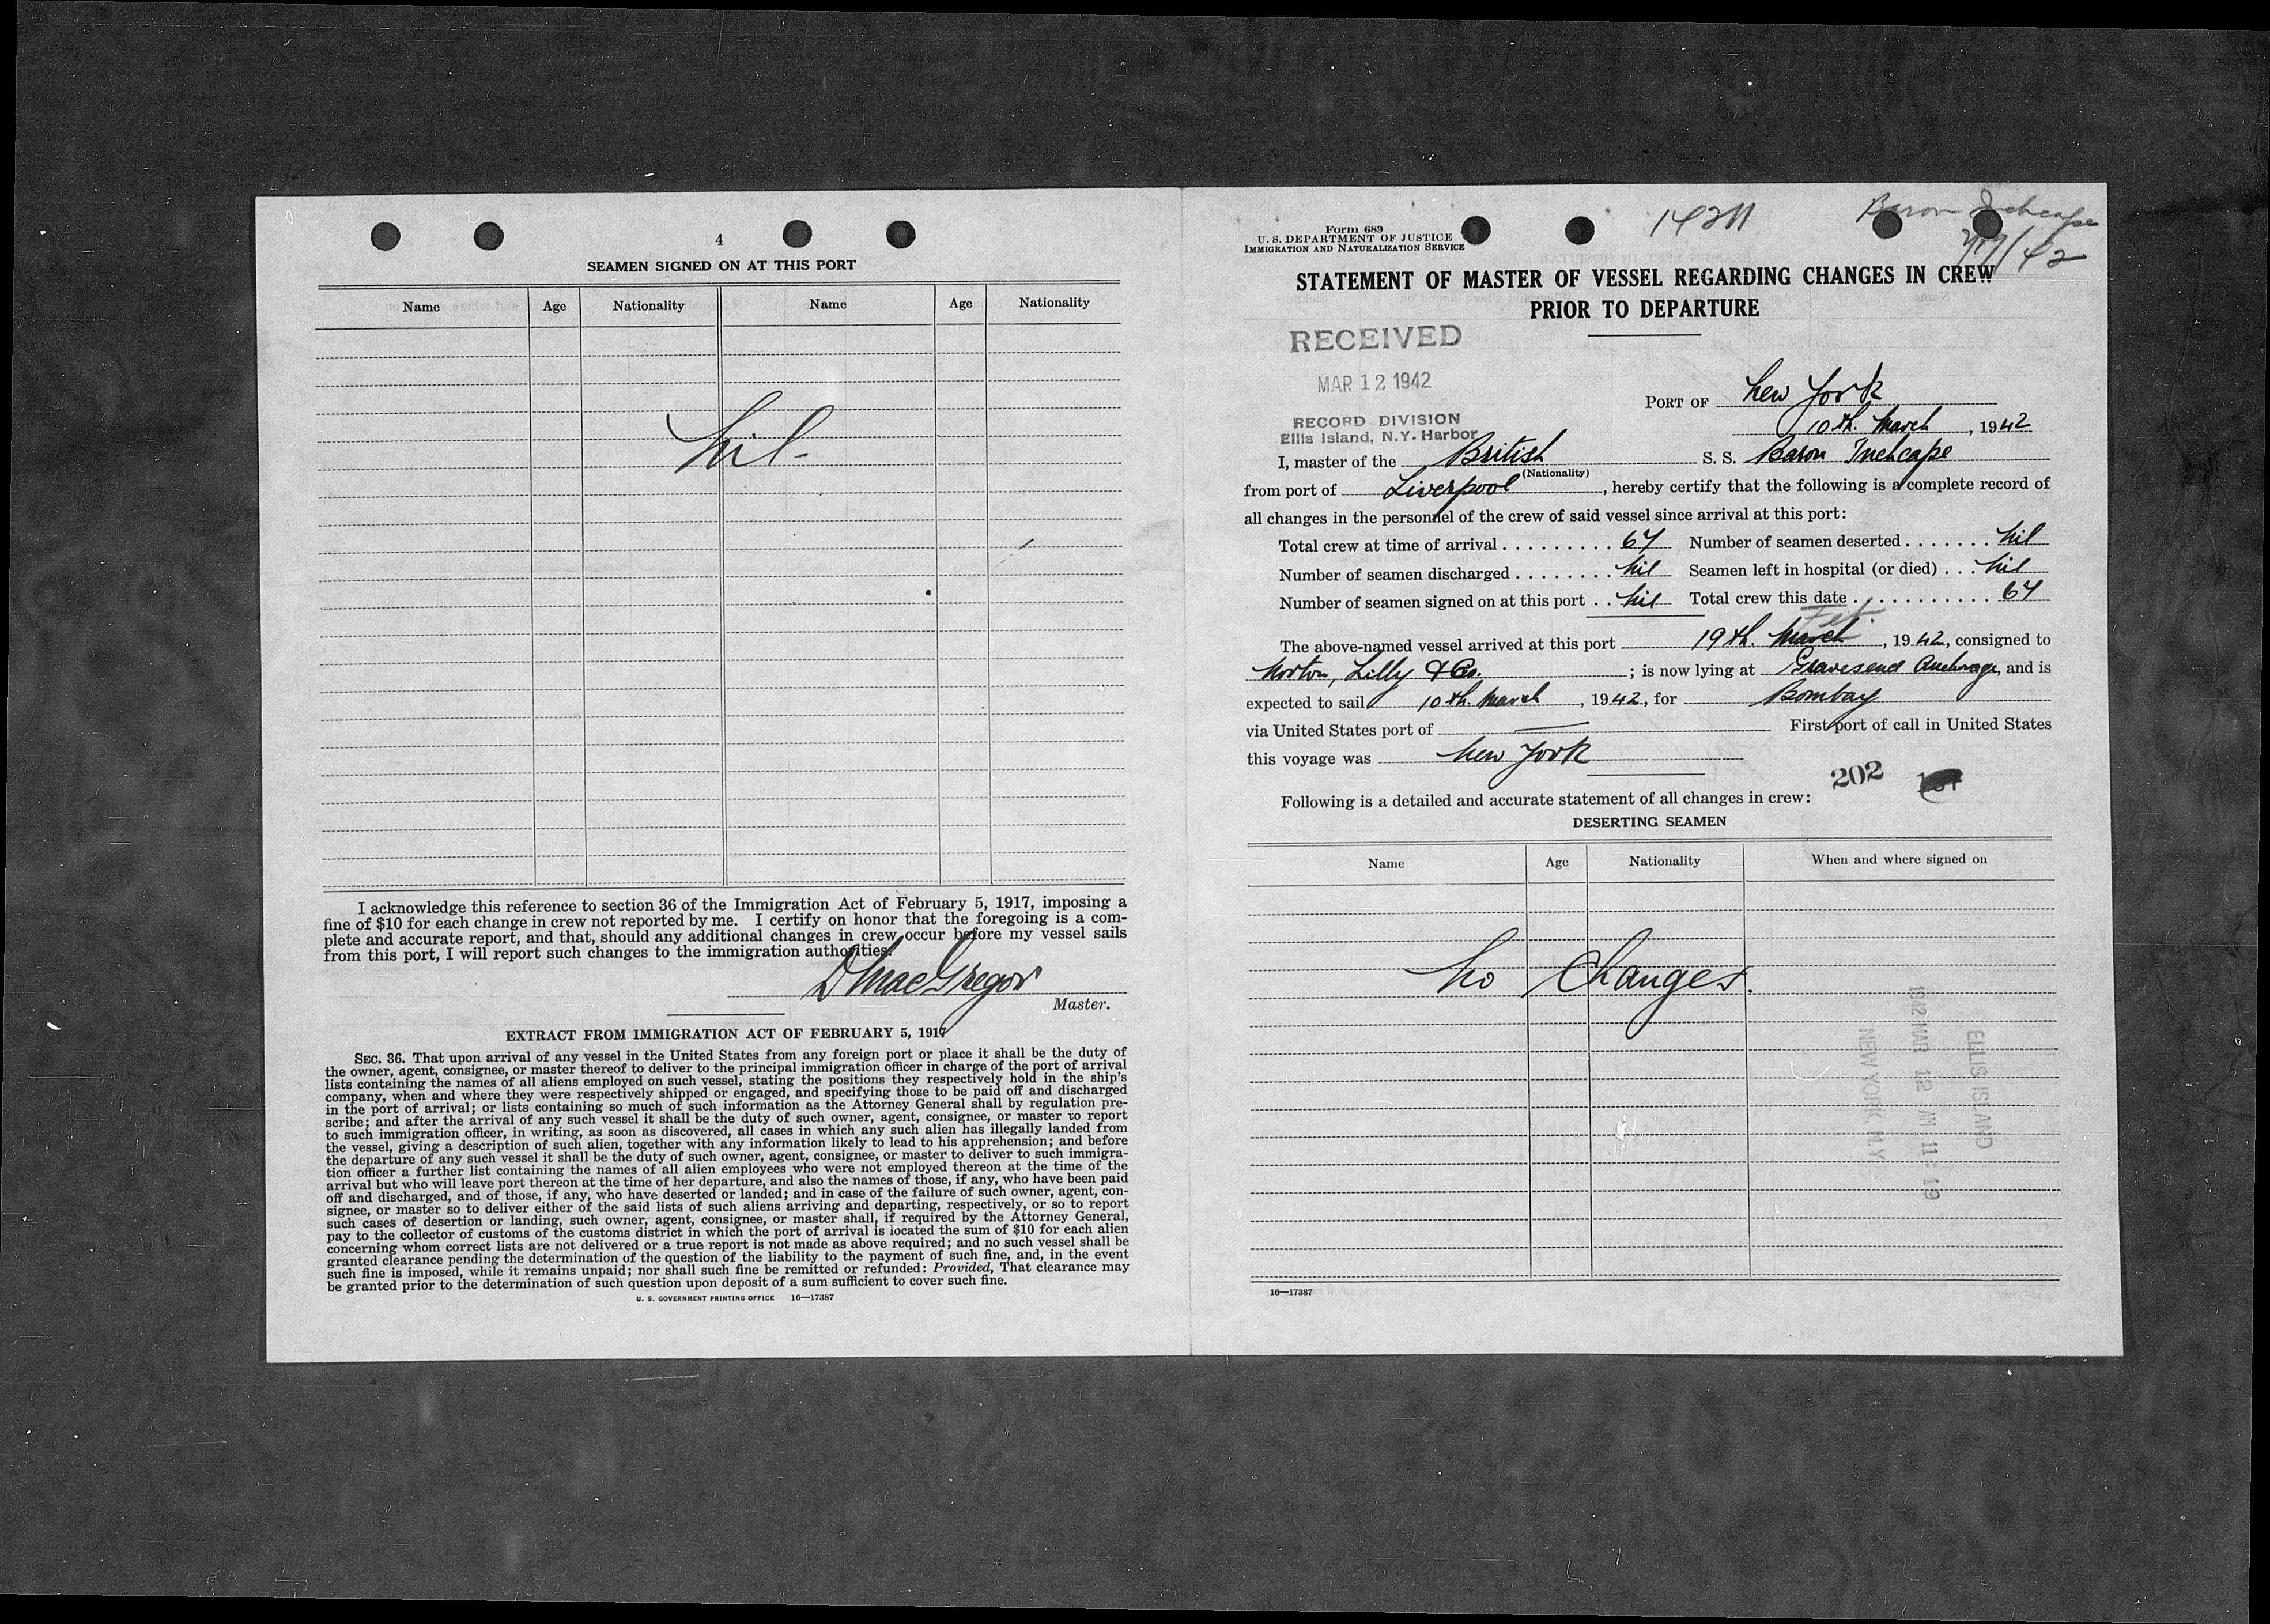 4
SEAMEN SIGNED ON AT THIS PORT
Name Age Nationality Name Age Nationality
Nil
I acknowledge this reference to section 36 of the Immigration Act of February 5, 1917, imposing a
fine of $10 for each change in crew not reported by me. I certify on honor that the foregoing is a com-
plete and accurate report, and that, should any additional changes in crew occur before my vessel sails
from this port, I will report such changes to the immigration authorities.
D MacGregor
Master.
EXTRACT FROM IMMIGRATION ACT OF FEBRUARY 5, 1917
SEC. 36. That upon arrival of any vessel in the United States from any foreign port or place it shall be the duty of
the owner, agent, consignee, or master thereof to deliver to the principal immigration officer in charge of the port of arrival
lists containing the names of all aliens employed on such vessel, stating the positions they respectively hold in the ship's
company, when and where they were respectively shipped or engaged, and specifying those to be paid off and discharged
in the port of arrival; or lists containing so much of such information as the Attorney General shall by regulation pre-
scribe; and after the arrival of any such vessel it shall be the duty of such owner, agent, consignee, or master to report
to such immigration officer, in writing, as soon as discovered, all cases in which any such alien has illegally landed from
the vessel, giving a description of such alien, together with any information likely to lead to his apprehension; and before
the departure of any such vessel it shall be the duty of such owner, agent, consignee, or master to deliver to such immigra-
tion officer a further list containing the names of all alien employees who were not employed thereon at the time of the
arrival but who will leave port thereon at the time of her departure, and also the names of those, if any, who have been paid
off and discharged, and of those, if any, who have deserted or landed; and in case of the failure of such owner, agent, con-
signee, or master so to deliver either of the said lists of such aliens arriving and departing, respectively, or so to report
such cases of desertion or landing, such owner, agent, consignee, or master shall, if required by the Attorney General,
pay to the collector of customs of the customs district in which the port of arrival is located the sum of $10 for each alien
concerning whom correct lists are not delivered or a true report is not made as above required; and no such vessel shall be
granted clearance pending the determination of the question of the liability to the payment of such fine, and, in the event
such fine is imposed, while it remains unpaid; nor shall such fine be remitted or refunded: Provided, That clearance may
be granted prior to the determination of such question upon deposit of a sum sufficient to cover such fine.
U. S. GOVERNMENT PRINTING OFFICE 16—17387
Form 689
U. S. DEPARTMENT OF JUSTICE
IMMIGRATION AND NATURALIZATION SERVICE
14211
Baron Inchcape
STATEMENT OF MASTER OF VESSEL REGARDING CHANGES IN CREW
PRIOR TO DEPARTURE
RECEIVED
MAR 12 1942
RECORD DIVISION
Ellis Island, N.Y. Harbor
PORT OF New York
10th. March, 1942
I, master of the British S. S. Baron Inchcape
(Nationality)
from port of Liverpool, hereby certify that the following is a complete record of
all changes in the personnel of the crew of said vessel since arrival at this port:
Total crew at time of arrival . . . . . . . . . 64 Number of seamen deserted . . . . . . . Nil
Number of seamen discharged . . . . . . . . Nil Seamen left in hospital (or died) . . . Nil
Number of seamen signed on at this port . . Nil Total crew this date . . . . . . . . . . . 64
Feb.
The above-named vessel arrived at this port 19th. March, 1942, consigned to
Norton, Lilly & Co. ; is now lying at Gravesend Anchorage, and is
expected to sail 10th. March, 1942, for Bombay
via United States port of — First port of call in United States
this voyage was New York
202
Following is a detailed and accurate statement of all changes in crew:
DESERTING SEAMEN
Name Age Nationality When and where signed on
No Changes.
ELLIS ISLAND
1942 MAR 12 AM 11:19
NEW YORK, N.Y.
16—17387